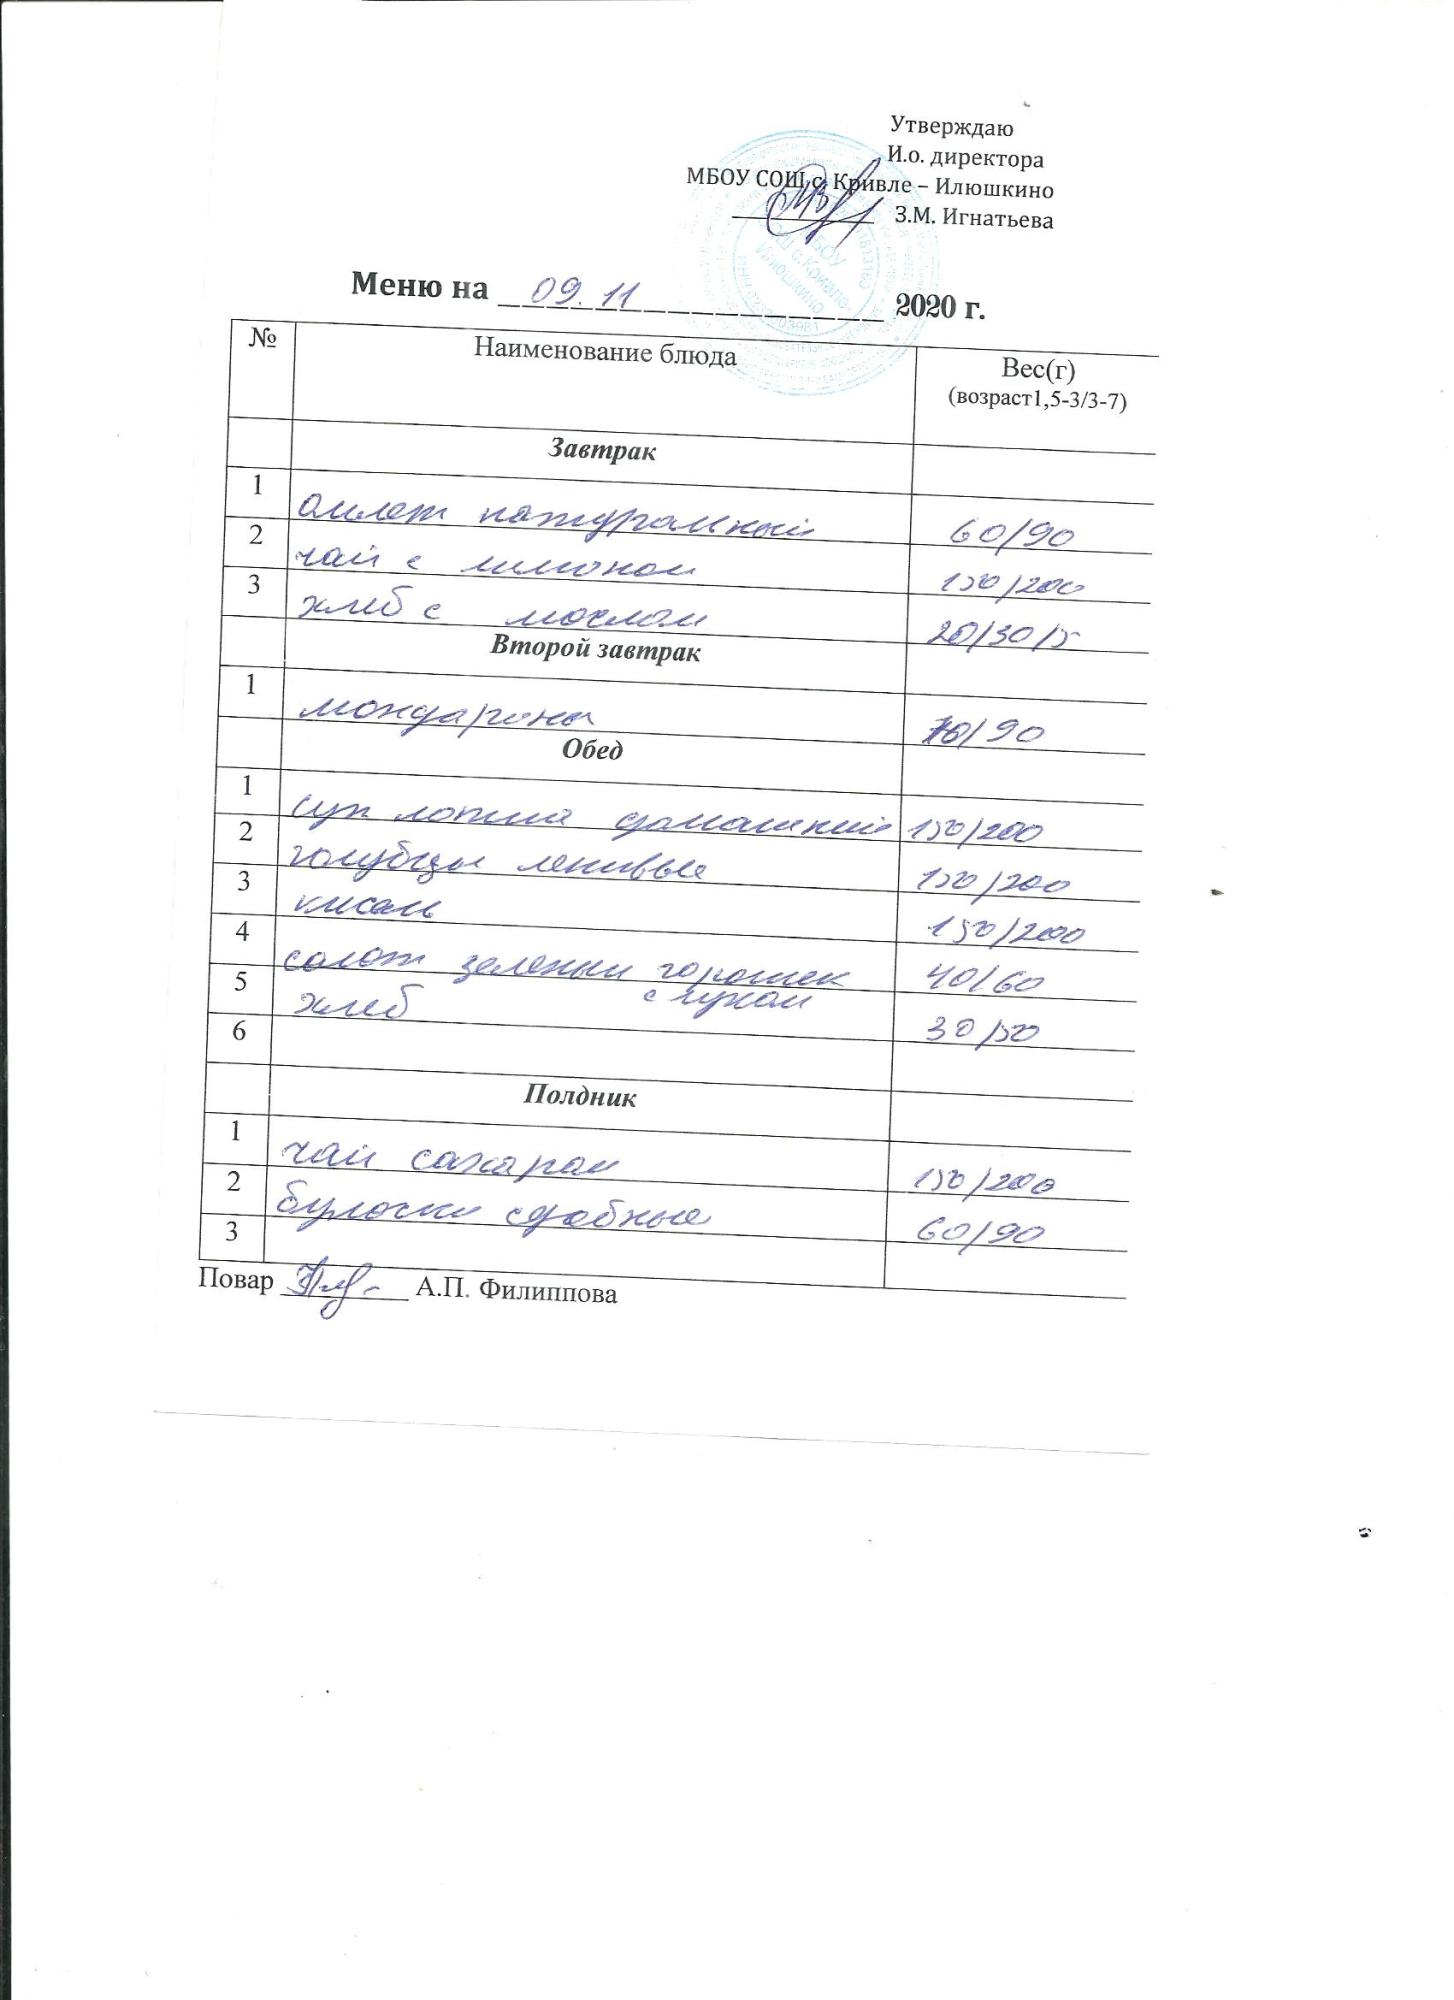 Утверждаю
И.о. директора
МБОУ СОШ с. Кривле – Илюшкино
З.М. Игнатьева
Меню на 09.11 2020 г.
№ Наименование блюда Вес(г)
(возраст1,5-3/3-7)
Завтрак
1 омлет натуральный 60/90
2 чай с лимоном 150/200
3 хлеб с маслом 20/30/5
Второй завтрак
1 мондарины 70/90
Обед
1 суп лапша домашний 150/200
2 голубцы ленивые 150/200
3 кисель 150/200
4 салат зеленый горошек 40/60
с луком
5 хлеб 30/50
6
Полдник
1 чай сахаром 150/200
2 булочки сдобные 60/90
3
Повар А.П. Филиппова